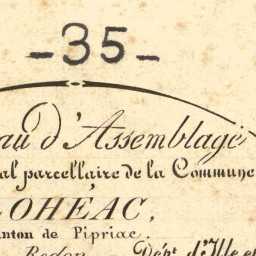 -35-
au d'Assemblage
al parcellaire de la Commune
OHÉAC,
anton de Pipriac.
Redon Dépt d'Ille e